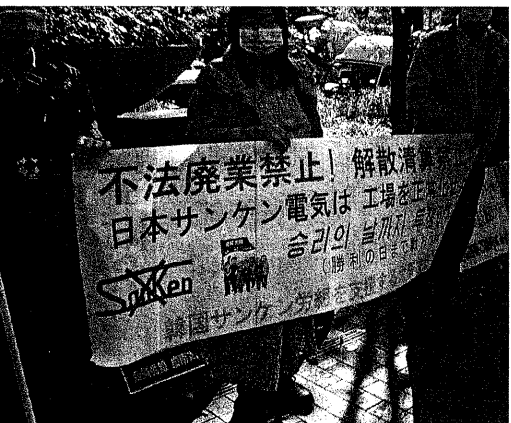 不法廃業禁止! 解散清算
日本サンケン電気は 工場を正
승리의 날까지
(勝利の日まで
Sanken
韓国サンケン労組を支援する